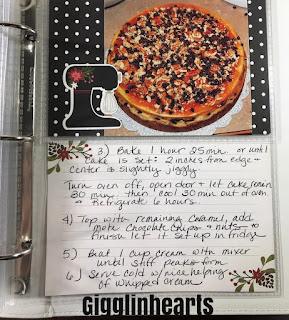 3) Bake 1 hour 25 min. or until
cake is set: 2 inches from edge +
center is slightly jiggly.
Turn oven off, open door + let cake remain
30 mins, then cool 30 min out of oven
+ Refrigerate 6 hours.
4) Top with remaining caramel, add
more chocolate chips + nuts to
finish let it set up in fridge
5) Beat 1 cup cream with mixer
until stiff peaks form
6) Serve cold w/nice helping
of whipped cream
Gigglinhearts